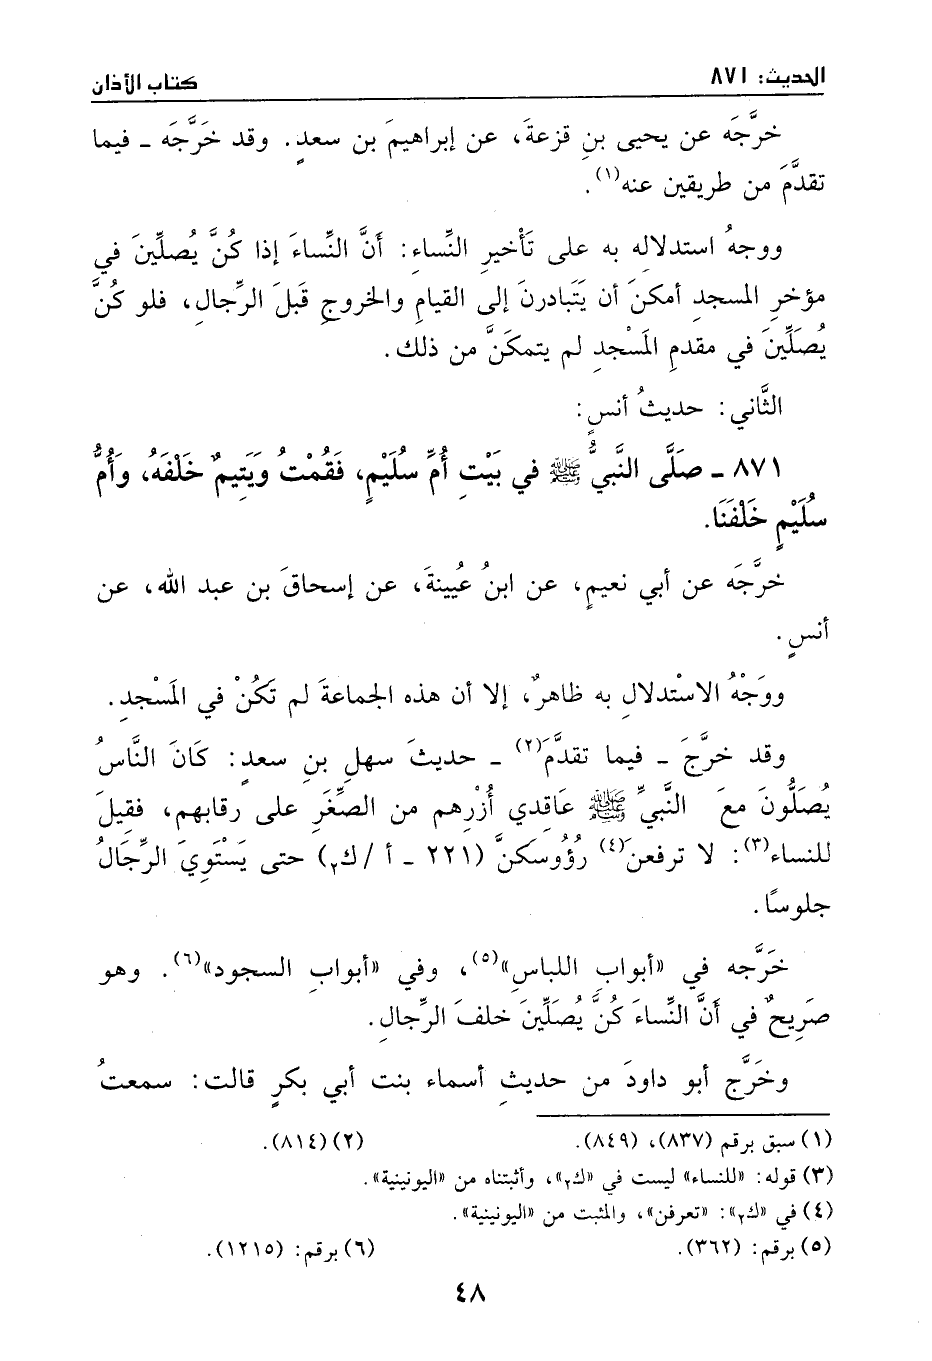 الحديث: ٨٧١ كتاب الأذان
خرَّجَه عن يحيى بنِ قزعةَ، عن إبراهيمَ بن سعدٍ. وقد خَرَّجَه ـ فيما
تقدَّمَ من طريقين عنه(١).
ووجهُ استدلاله به على تَأْخيرِ النِّساء: أَنَّ النِّساءَ إذا كُنَّ يُصلِّينَ في
مؤخرِ المسجدِ أمكنَ أن يَتَبادرنَ إلى القيامِ والخروجِ قَبلَ الرِّجالِ، فلو كُنَّ
يُصَلِّينَ في مقدمِ المَسْجدِ لم يتمكنَّ من ذلك.
الثَّاني: حديثُ أنسٍ:
٨٧١ ـ صَلَّى النَّبيُّ ﷺ في بَيْتِ أُمِّ سُلَيْمٍ، فَقُمْتُ وَيَتِيمٌ خَلْفَهُ، وَأُمُّ
سُلَيْمٍ خَلْفَنَا.
خرَّجَه عن أبي نعيمٍ، عن ابنُ عُيينةَ، عن إسحاقَ بن عبد الله، عن
أنسٍ.
ووَجْهُ الاسْتدلالِ به ظاهرٌ، إلا أن هذه الجماعةَ لم تَكُنْ في المَسْجدِ.
وقد خرَّجَ ـ فيما تقدَّمَ(٢) ـ حديثَ سهلِ بنِ سعدٍ: كَانَ النَّاسُ
يُصَلُّونَ معَ النَّبيِّ ﷺ عَاقدي أُزْرِهم من الصِّغَرِ على رقابهم، فقيلَ
للنساء(٣): لا ترفعن(٤) رُؤُوسكنَّ (٢٢١ ـ أ / ك٢) حتى يَسْتَوِيَ الرِّجَالُ
جلوسًا.
خَرَّجه في «أبوابِ اللباسِ»(٥)، وفي «أبوابِ السجود»(٦). وهو
صَرِيحٌ في أَنَّ النِّساءَ كُنَّ يُصَلِّينَ خلفَ الرِّجالِ.
وخَرَّج أبو داودَ من حديثِ أسماء بنت أبي بكرٍ قالت: سمعتُ
(١) سبق برقم (٨٣٧)، (٨٤٩). (٢) (٨١٤).
(٣) قوله: «للنساء» ليست في «ك٢»، وأثبتناه من «اليونينية».
(٤) في «ك٢»: «تعرفن»، والمثبت من «اليونينية».
(٥) برقم: (٣٦٢). (٦) برقم: (١٢١٥).
٤٨